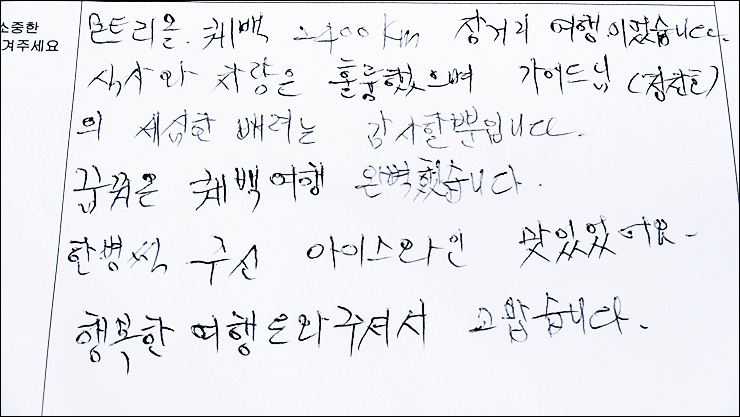 소중한
겨주세요
몬트리올. 퀘백 2400km 장거리 여행이었습니다.
식사와 차량은 훌륭했으며 가이드님
의 세심한 배려는 감사할뿐입니다.
꿈꿔온 퀘백여행 완벽했습니다.
한병씩 주신 아이스와인 맛있었어요.
행복한 여행 도와주셔서 고맙습니다.